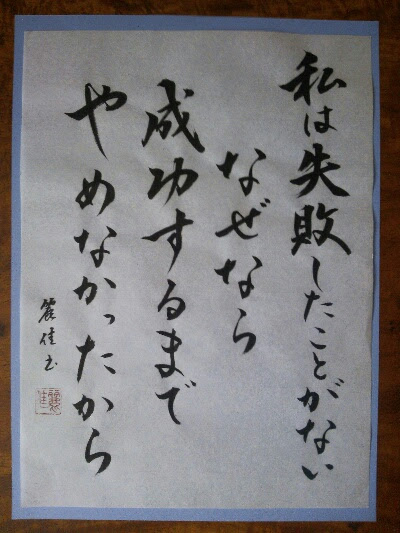 私は失敗したことがない
なぜなら
成功するまで
やめなかったから
麗佳书